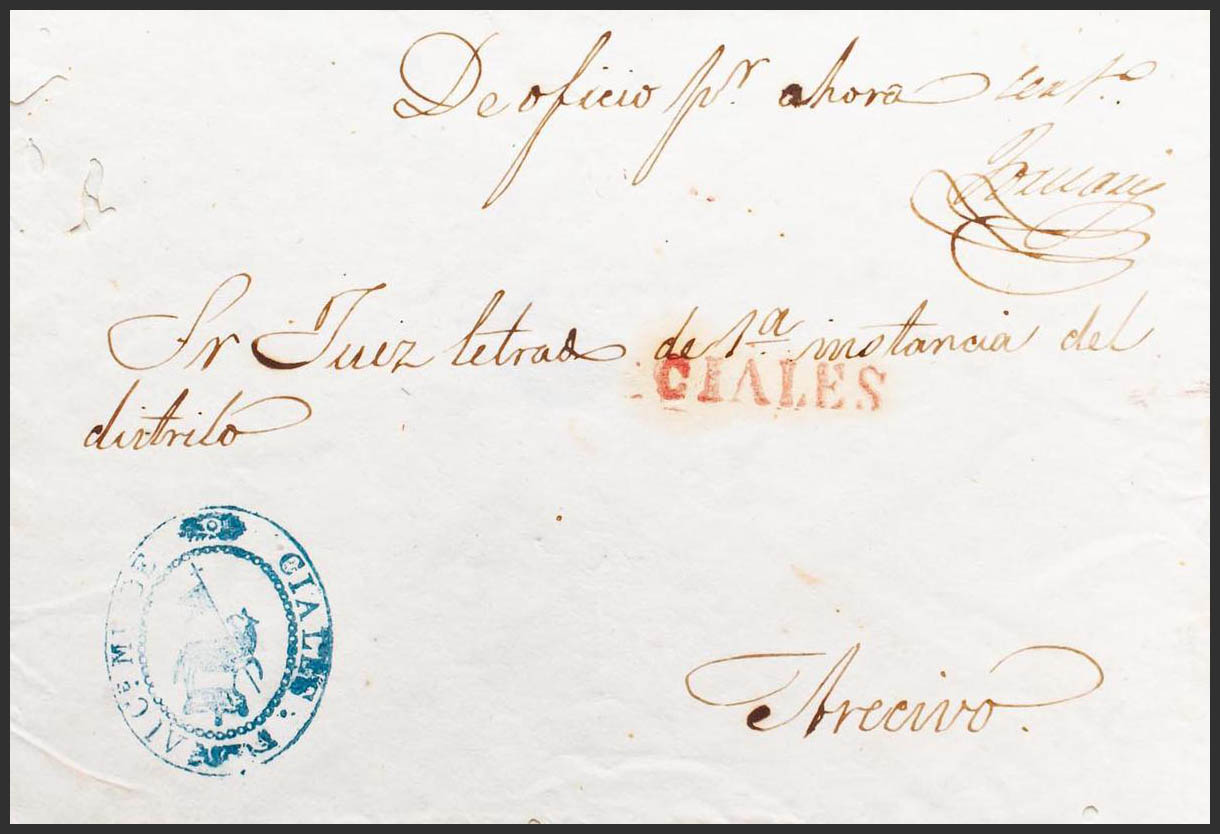 De oficio pr. ahora
Sr Juez letrado de 1a. instancia del
CIALES
distrito
CIALES
Arecivo.